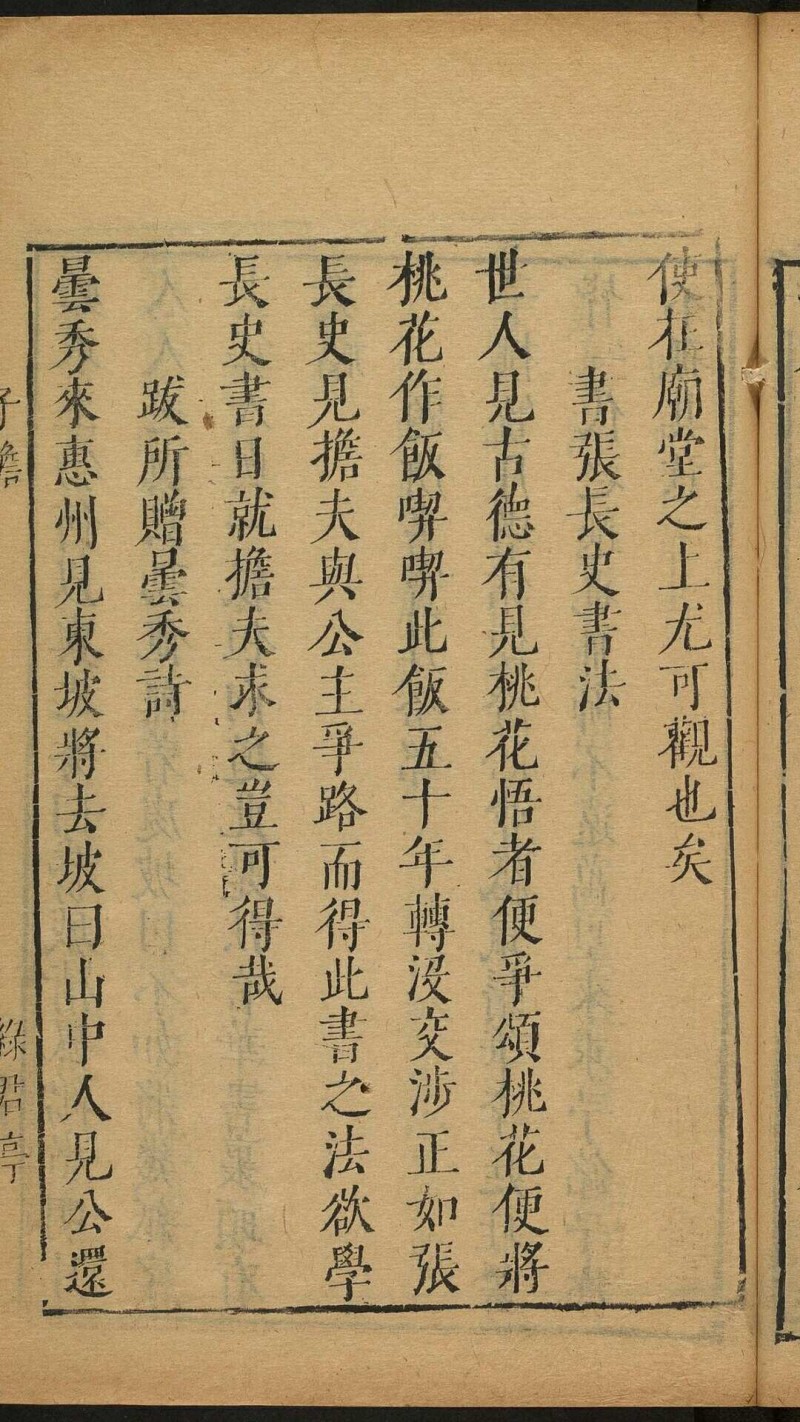 使在廟堂之上尤可觀也矣
書張長史書法
世人見古德有見桃花悟者便爭頌桃花便將
桃花作飯喫喫此飯五十年轉没交涉正如張
長史見擔夫與公主爭路而得此書之法欲學
長史書日就擔夫求之豈可得哉
跋所贈曇秀詩
曇秀來惠州見東坡將去坡曰山中人見公還
子瞻
綠君亭